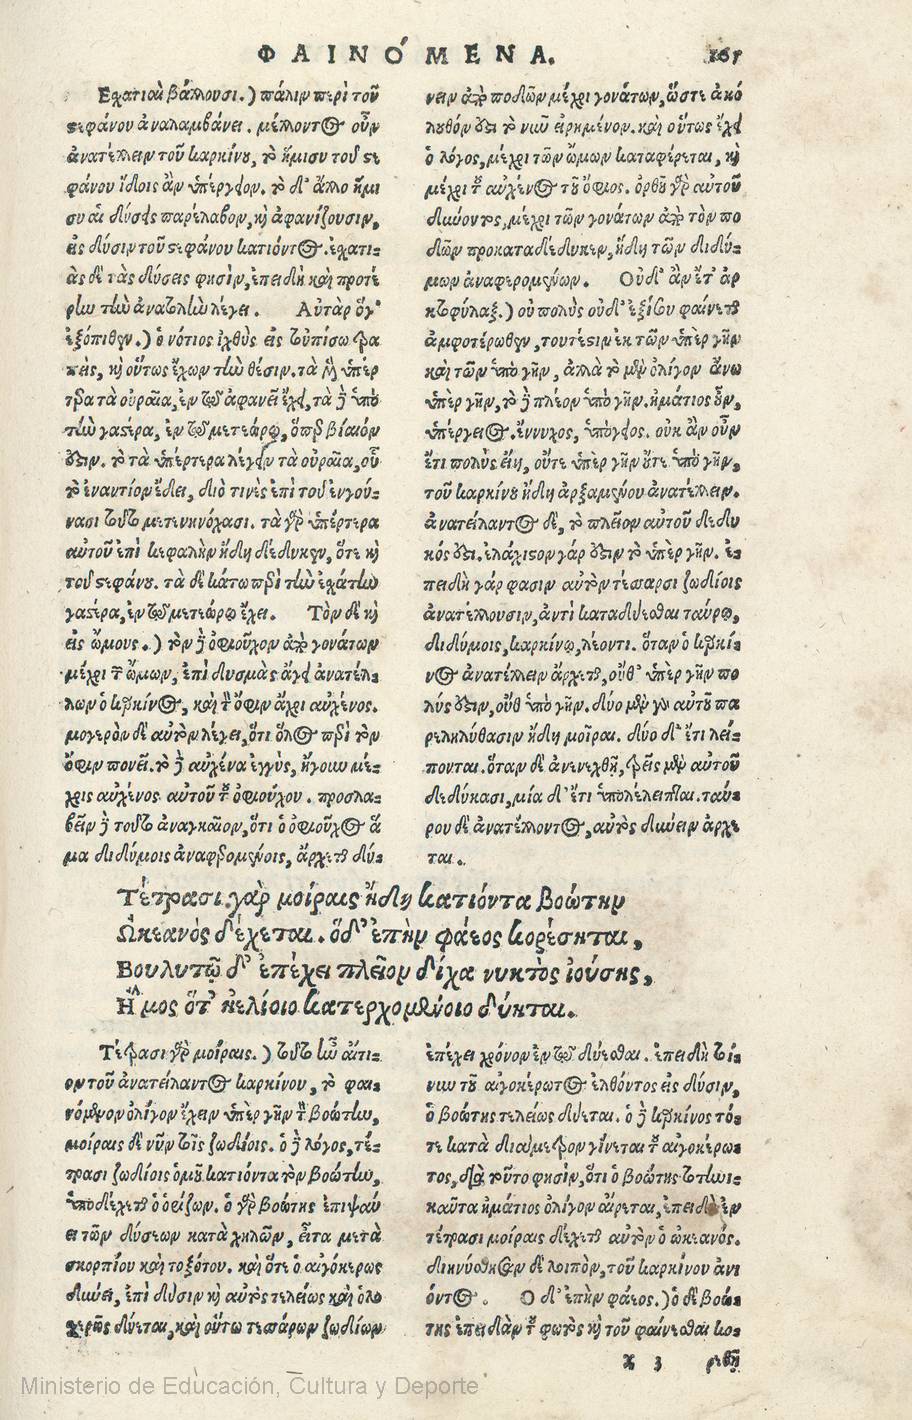 ΦΑΙΝΌΜΕΝΑ. 161
Ἐχατιαὶ βάλλουσι.) πάλιν περὶ τοῦ
στεφάνου ἀναλαμβάνει. μέλλοντος οὖν
ἀνατέλλειν τοῦ καρκίνου, τὸ ἥμισυ τοῦ στε
φάνου ἴδοις ἂν ὑπέργειον. τὸ δ' ἄλλο ἥμι
συ αἱ δύσεις παρέλαβον, καὶ ἀφανίζουσιν,
εἰς δύσιν τοῦ στεφάνου κατιόντος. ἐχατι-
ὰς δὲ τὰς δύσεις φησὶν, ἐπειδὴ καὶ προτέ
ρην τὴν ἀνατολὴν λέγει. Αὐτὰρ ὅγ'
ἐξόπιθεν.) ὁ νότιος ἰχθὺς εἰς τοὐπίσω
καὶ οὕτως ἔχων τὴν θέσιν. τὰ μὲν ὑπέρ
τερα τὰ οὐραῖα, ἐν τῷ ἀφανεῖ ἔχει, τὰ δὲ ὑπὸ
τὴν γαστέρα, ἐν τῷ μετεώρῳ, ὅπερ βίαιόν
ἐστιν. τὸ τὰ ὑπέρτερα λέγειν τὰ οὐραῖα, οὗ
τὸ ἐναντίον ἔδει, διὸ τινὲς ἐπὶ τοῦ ἐνγού-
νασι τοῦτο μετενηνόχασι. τὰ γὰρ ὑπέρτερα
αὐτοῦ ἐπὶ κεφαλὴν ἤδη δέδυκεν, ὅτε καὶ
τοῦ στεφάνου. τὰ δὲ κάτω περὶ τὴν ἐχάτην
γαστέρα, ἐν τῷ μετεώρῳ ἔχει. Τὸν δὲ καὶ
εἰς ὤμους.) τὸν δὲ ὀφιοῦχον ἀπὸ γονάτων
μέχρι τῶν ὤμων, ἐπὶ δυσμὰς ἄγει ἀνατέλ-
λων ὁ καρκίνος, καὶ τὸν ὄφιν ἄχρι αὐχένος.
μογερὸν δὲ αὐτὸν λέγει, ὅτι ὅλος περὶ τὸν
ὄφιν πονεῖ. τὸ δὲ αὐχένα ἐγγὺς, ἤγουν μέ-
χρις αὐχένος αὐτοῦ τοῦ ὀφιούχου. προσλα-
βεῖν δὲ τοῦτο ἀναγκαῖον, ὅτι ὁ ὀφιοῦχος ἅ
μα διδύμοις ἀναφερομένοις, ἄρχεται δύ-
νειν ἀπὸ ποδῶν μέχρι γονάτων, ὥστε ἀκό
λουθόν ἐστι τὸ νῦν εἰρημένον. καὶ οὕτως ἔχει
ὁ λόγος, μέχρι τῶν ὤμων καταφέρεται, καὶ
μέχρι τοῦ αὐχένος τοῦ ὄφιος. ὀρθοῦ γὰρ αὐτοῦ
δύνοντος, μέχρι τῶν γονάτων ἀπὸ τῶν πο
δῶν προκαταδέδυκεν, ἤδη τῶν διδύ-
μων ἀναφερομένων. Οὐδ' ἂν ἔτ' ἀρ
κτοφύλαξ.) οὐ πολὺς οὐδ' ἐξ ἴσου φαίνεται
ἀμφοτέρωθεν, τουτέστιν ἐκ τῶν ὑπὲρ γῆν
καὶ τῶν ὑπὸ γῆν, ἀλλὰ τὸ μὲν ὀλίγον ἄνω
ὑπὲρ γῆν, τὸ δὲ πλέον ὑπὸ γῆν. ἠμάτιος οὖν,
ὑπέργειος. ἔννυχος, ὑπόγειος. οὐκ ἂν οὖν
ἔτι πολὺς εἴη, οὔτε ὑπὲρ γῆν οὔτε ὑπὸ γῆν,
τοῦ καρκίνου ἤδη ἀρξαμένου ἀνατέλλειν.
ἀνατείλαντος δὲ, τὸ πλεῖον αὐτοῦ δεδυ
κός ἐστι. ἐλάχιστον γάρ ἐστιν τὸ ὑπὲρ γῆν. ἐ-
πειδὴ γάρ φασιν αὐτὸν τέσσαρσι ζωδίοις
ἀνατέλλουσιν, ἀντικαταδύεσθαι ταύρῳ,
διδύμοις, καρκίνῳ, λέοντι. ὅταν ὁ καρκί-
νος ἀνατέλλειν ἄρχεται, οὔθ' ὑπὲρ γῆν πο
λύς ἐστιν, οὔθ' ὑπὸ γῆν. δύο μὲν γὰρ αὐτοῦ πα
ρεληλύθασιν ἤδη μοῖραι. δύο δ' ἔτι λεί-
πονται. ὅταν δὲ ἀνενεχθῇ, τρεῖς μὲν αὐτοῦ
δεδύκασι, μία δ' ἔτι ὑπολέλειπται. ταύ-
ρου δὲ ἀνατέλλοντος, αὐτὸς δύνειν ἄρχε
ται.
Τέτρασι γὰρ μοίραις ἤδη κατιόντα βοώτην
Ὠκεανὸς δέχεται. ὁ δ' ἐπὴν φάεος κορέσηται,
Βουλυτῷ δ' ἐπέχει πλεῖον δίχα νυκτὸς ἰούσης,
Ἦμος ὅτ' ἠελίοιο κατερχομένοιο δύηται.
Τέτρασι γὰρ μοίραις.) τοῦτο ἦν αἴτι-
ον τοῦ ἀνατείλαντος καρκίνου, τὸ φαι-
νόμενον ὀλίγον ἔχειν ὑπὲρ γῆν τὸν βοώτην,
μοίραις δὲ νῦν τοῖς ζωδίοις. ὁ δὲ λόγος, τέ-
τρασι ζωδίοις ὁμοῦ κατιόντα τὸν βοώτην,
ὑποδέχεται ὁ ὁρίζων. ὁ γὰρ βοώτης ἐπιψαύ
ει τῶν δύσεων κατὰ χηλῶν, εἶτα μετὰ
σκορπίου καὶ τοξότου. καὶ ὅτε ὁ αἰγόκερως
δύνει, ἐπὶ δύσιν καὶ αὐτὸς τελείως καὶ ὁλο
χερῶς δύεται, καὶ οὕτω τεσσάρων ζωδίων
ἐπέχει χρόνον ἐν τῷ δύεσθαι. ἐπειδὴ τοί-
νυν τοῦ αἰγοκέρωτος ἐλθόντος εἰς δύσιν,
ὁ βοώτης τελείως δύεται. ὁ δὲ καρκίνος τό-
τε κατὰ διάμετρον γίνεται τοῦ αἰγοκέρω-
τος, διὰ τοῦτο φησὶν, ὅτι ὁ βοώτης τοτηνι-
καῦτα ἠμάτιος ὀλίγον αἴρεται, ἐπειδὰν
τέτρασι μοίραις δέχεται αὐτὸν ὁ ὠκεανός.
δεικνύσθωσαν δὲ λοιπὸν, τοῦ καρκίνου ἀνι
όντος. Ὁ δ' ἐπὴν φάεος.) ὁ δὲ βοώ-
της ἐπειδὰν τοῦ φωτὸς καὶ τοῦ φαίνεσθαι κο-
x 3 ρεσθῇ
Ministerio de Educación, Cultura y Deporte